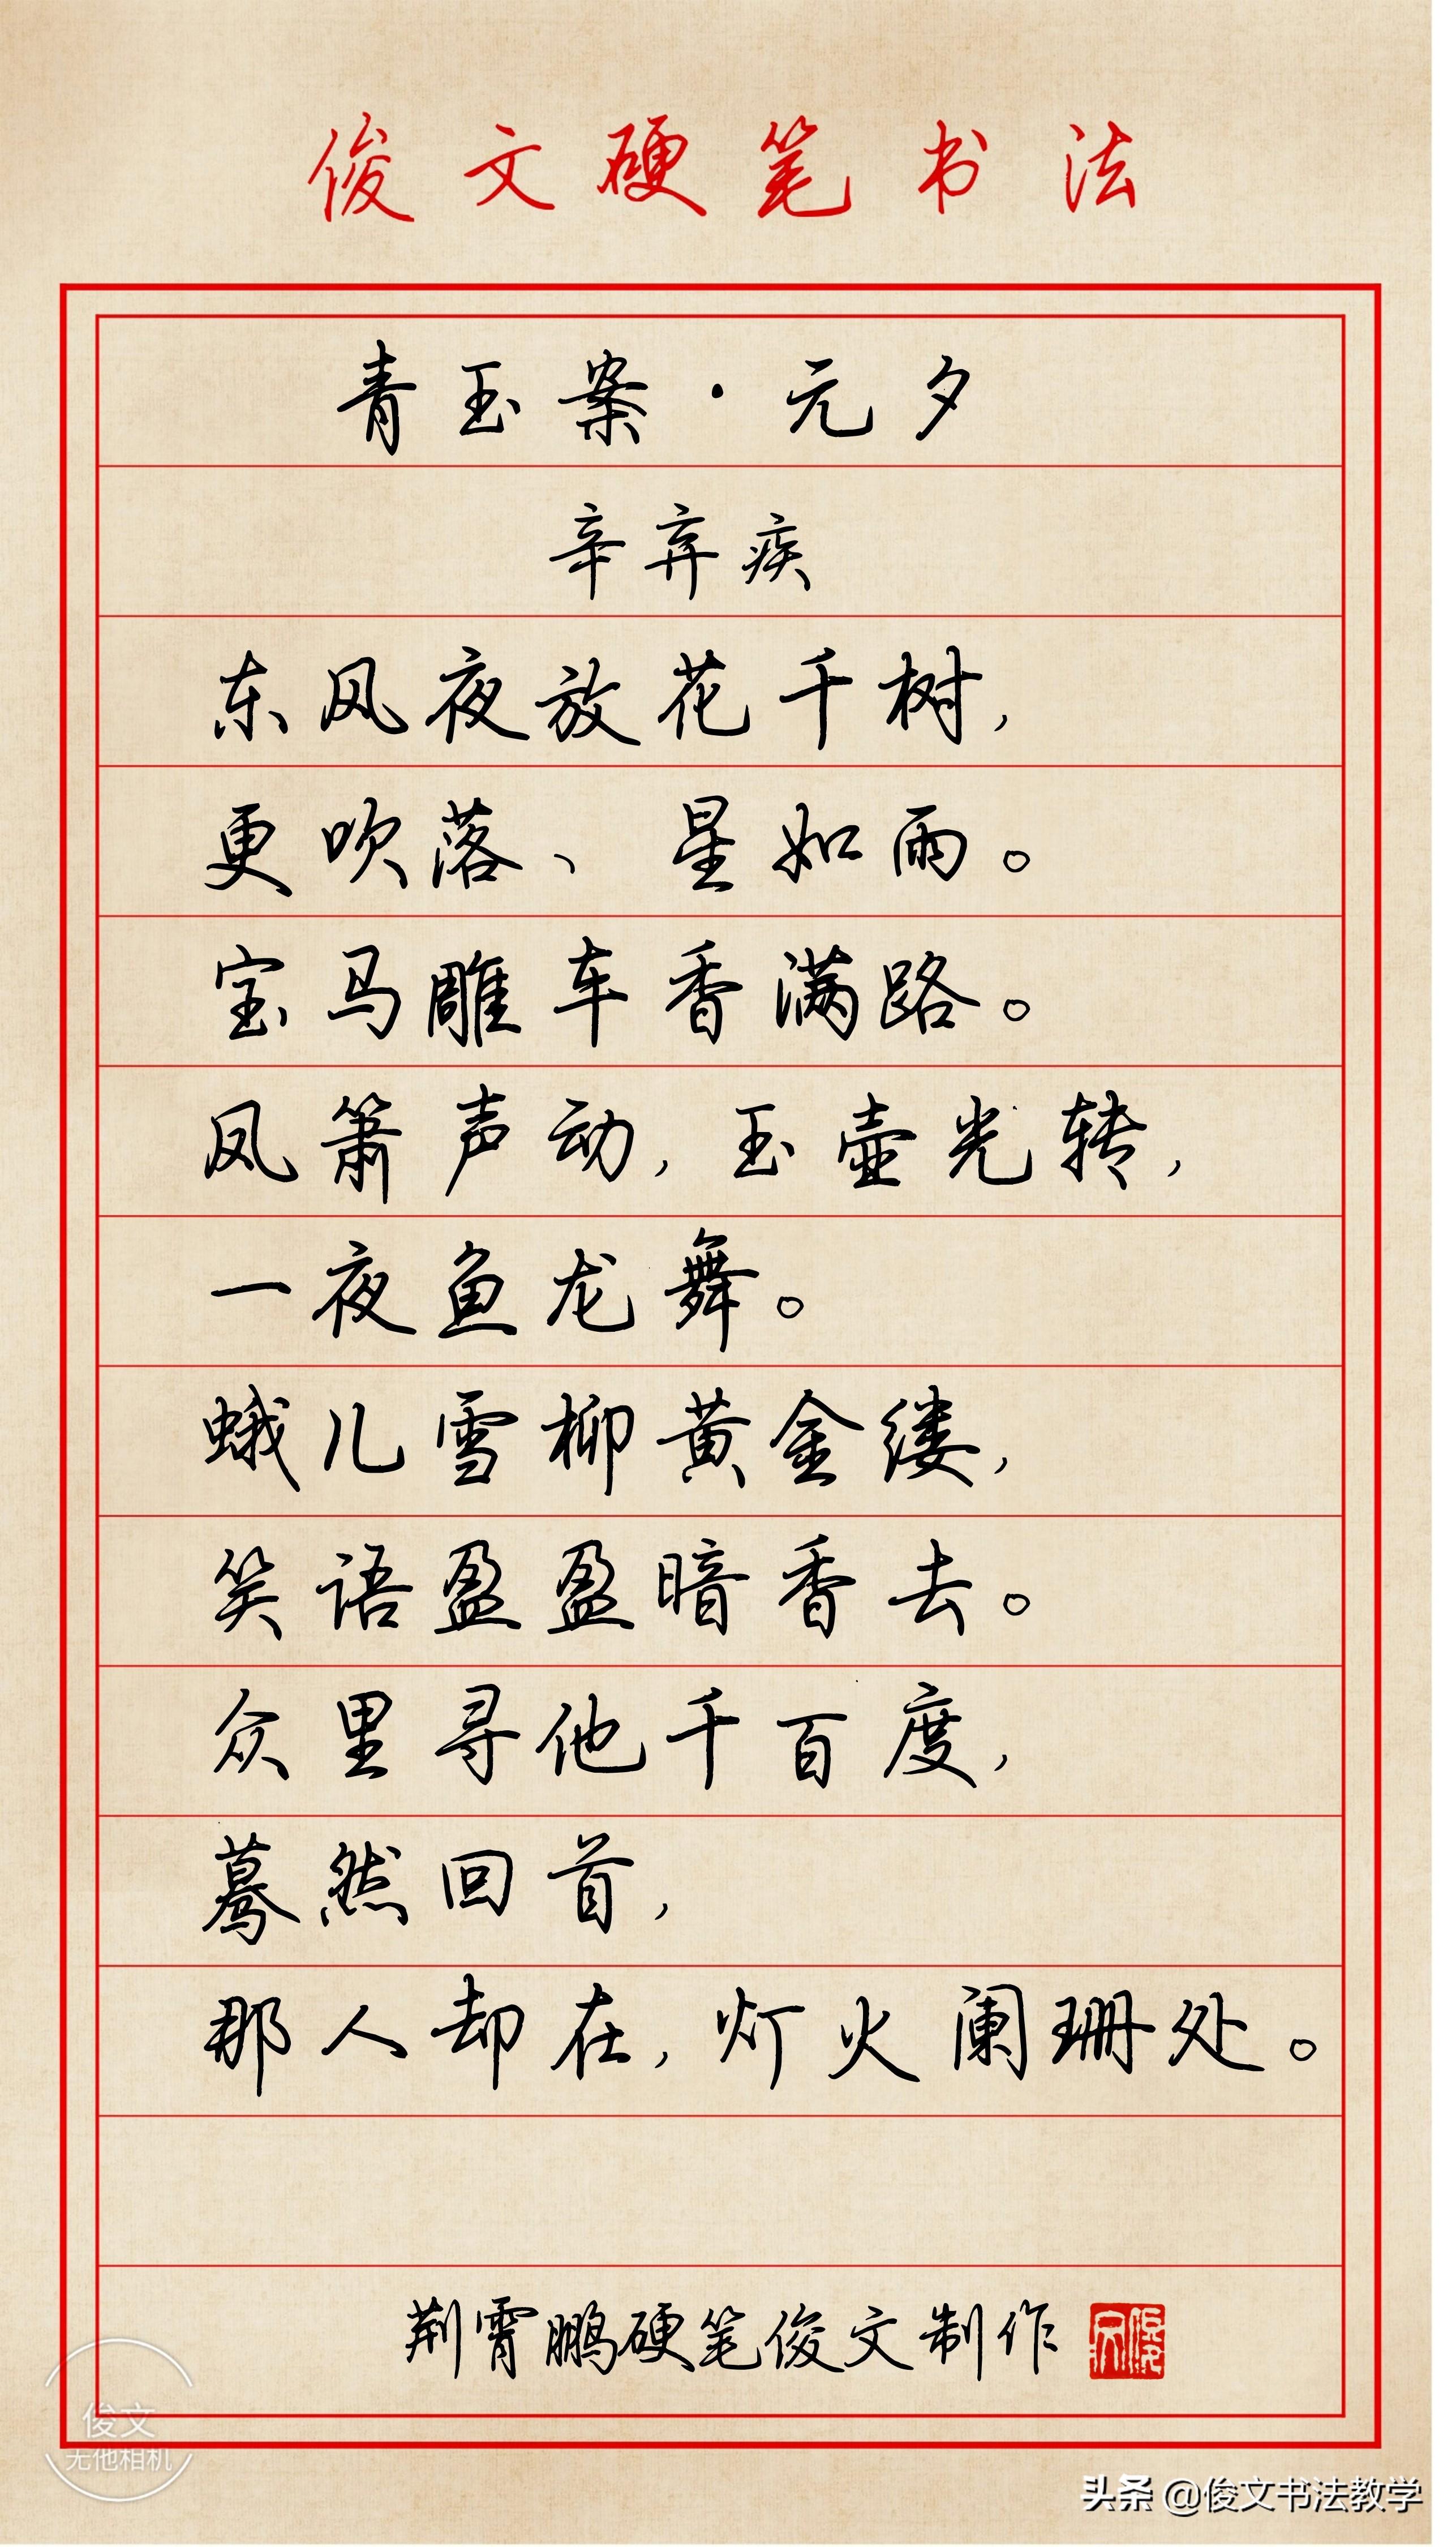 俊文硬笔书法
青玉案·元夕
辛弃疾
东风夜放花千树，
更吹落、星如雨。
宝马雕车香满路。
凤箫声动，玉壶光转，
一夜鱼龙舞。
蛾儿雪柳黄金缕，
笑语盈盈暗香去。
众里寻他千百度，
蓦然回首，
那人却在，灯火阑珊处。
荆霄鹏硬笔俊文制作
俊文
无他相机
头条 @俊文书法教学